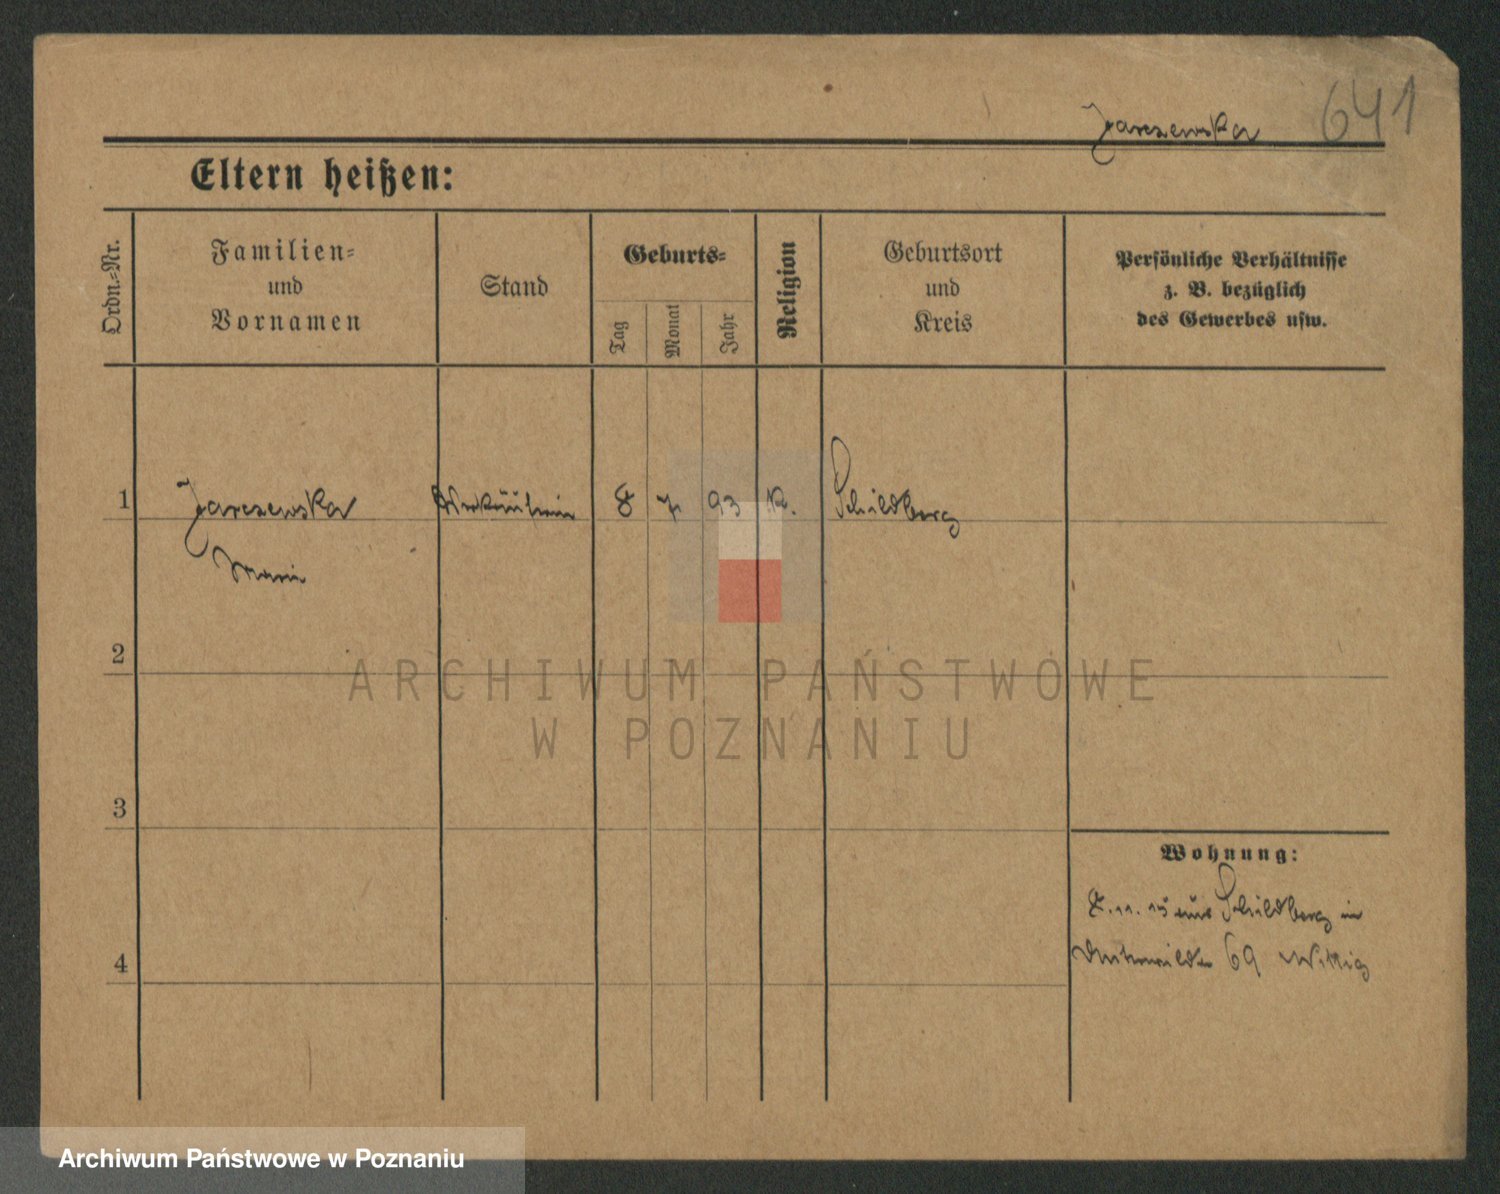 Jarczewska 641
Eltern heißen:
Ordn.=Nr.
Familien=
und
Vornamen
Stand
Geburts=
Tag
Monat
Jahr
Religion
Geburtsort
und
Kreis
Persönliche Verhältnisse
z. B. bezüglich
des Gewerbes usw.
1 Jarczewska Verkäuferin 8 7 93 K. Schildberg
Marie
2
ARCHIWUM PAŃSTWOWE
W POZNANIU
3
Wohnung:
8. 11. 15 aus Schildberg in
69 Wittig
4
Archiwum Państwowe w Poznaniu